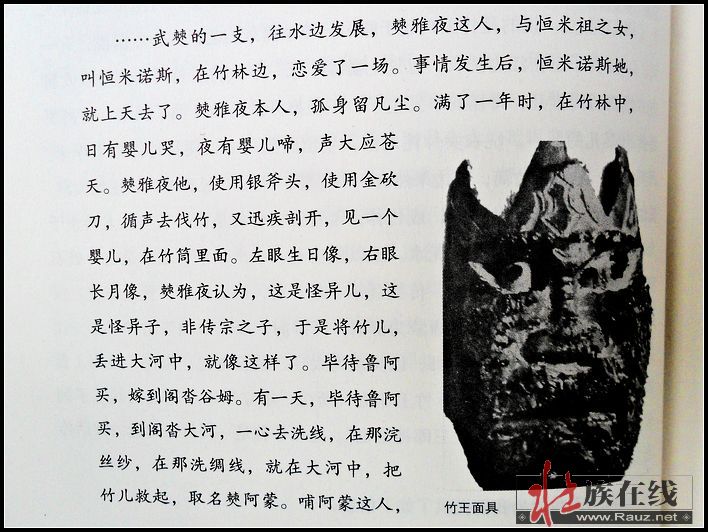 ……武僰的一支，往水边发展，僰雅夜这人，与恒米祖之女，
叫恒米诺斯，在竹林边，恋爱了一场。事情发生后，恒米诺斯她，
就上天去了。僰雅夜本人，孤身留凡尘。满了一年时，在竹林中，
日有婴儿哭，夜有婴儿啼，声大应苍
天。僰雅夜他，使用银斧头，使用金砍
刀，循声去伐竹，又迅疾剖开，见一个
婴儿，在竹筒里面。左眼生日像，右眼
长月像，僰雅夜认为，这是怪异儿，这
是怪异子，非传宗之子，于是将竹儿，
丢进大河中，就像这样了。毕待鲁阿
买，嫁到阁沓谷姆。有一天，毕待鲁阿
买，到阁沓大河，一心去洗线，在那浣
丝纱，在那洗绸线，就在大河中，把
竹儿救起，取名僰阿蒙。哺阿蒙这人，
竹王面具
壮族在线
www.Rauz.net